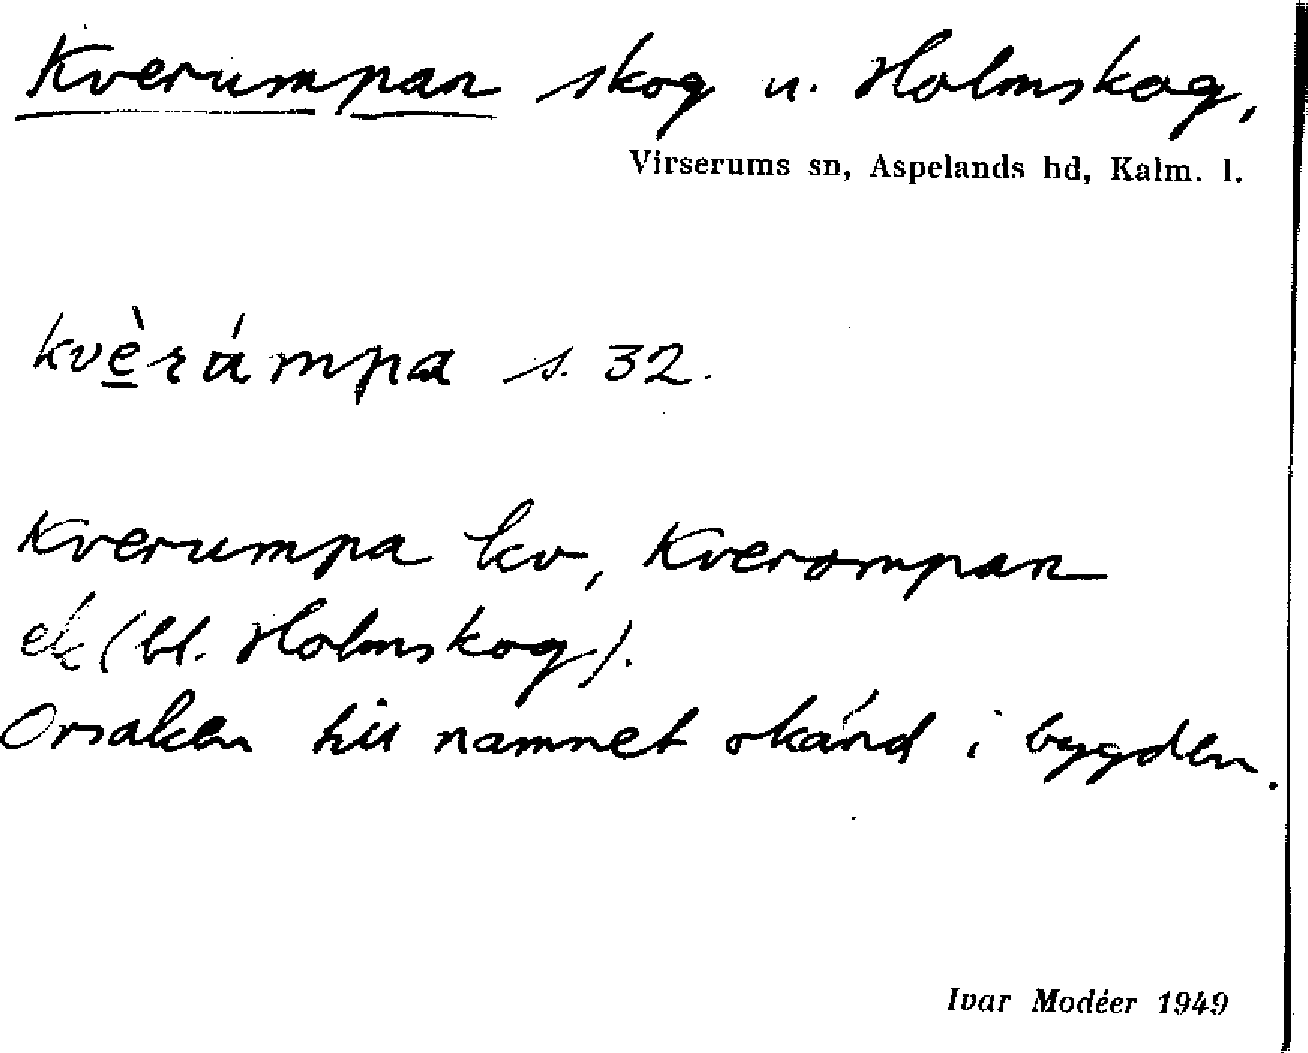 Kverumpan skog u. Holmskog,
Virserums sn, Aspelands hd, Kalm. l.
kvèrúmpa s. 32.
Kverumpa kv, Kverompan
ek (bl. Holmskog).
Orsaken till namnet okänd i bygden.
Ivar Modéer 1949